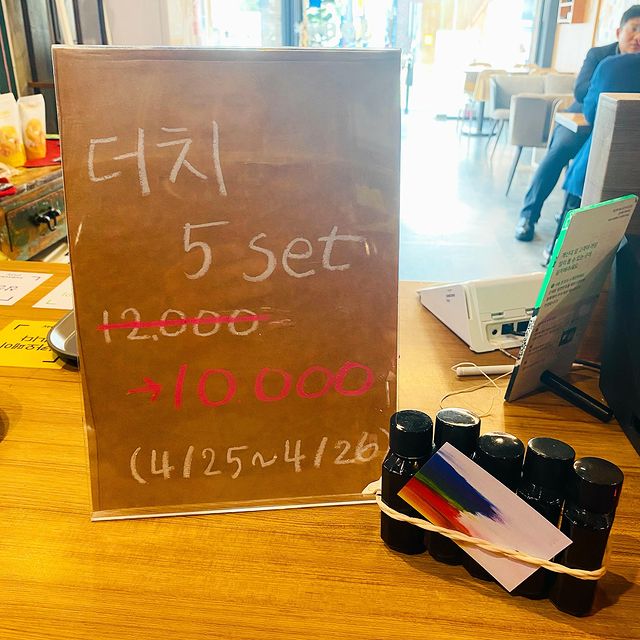 더치
5 set
12.000
→10000
(4/25~4/26)